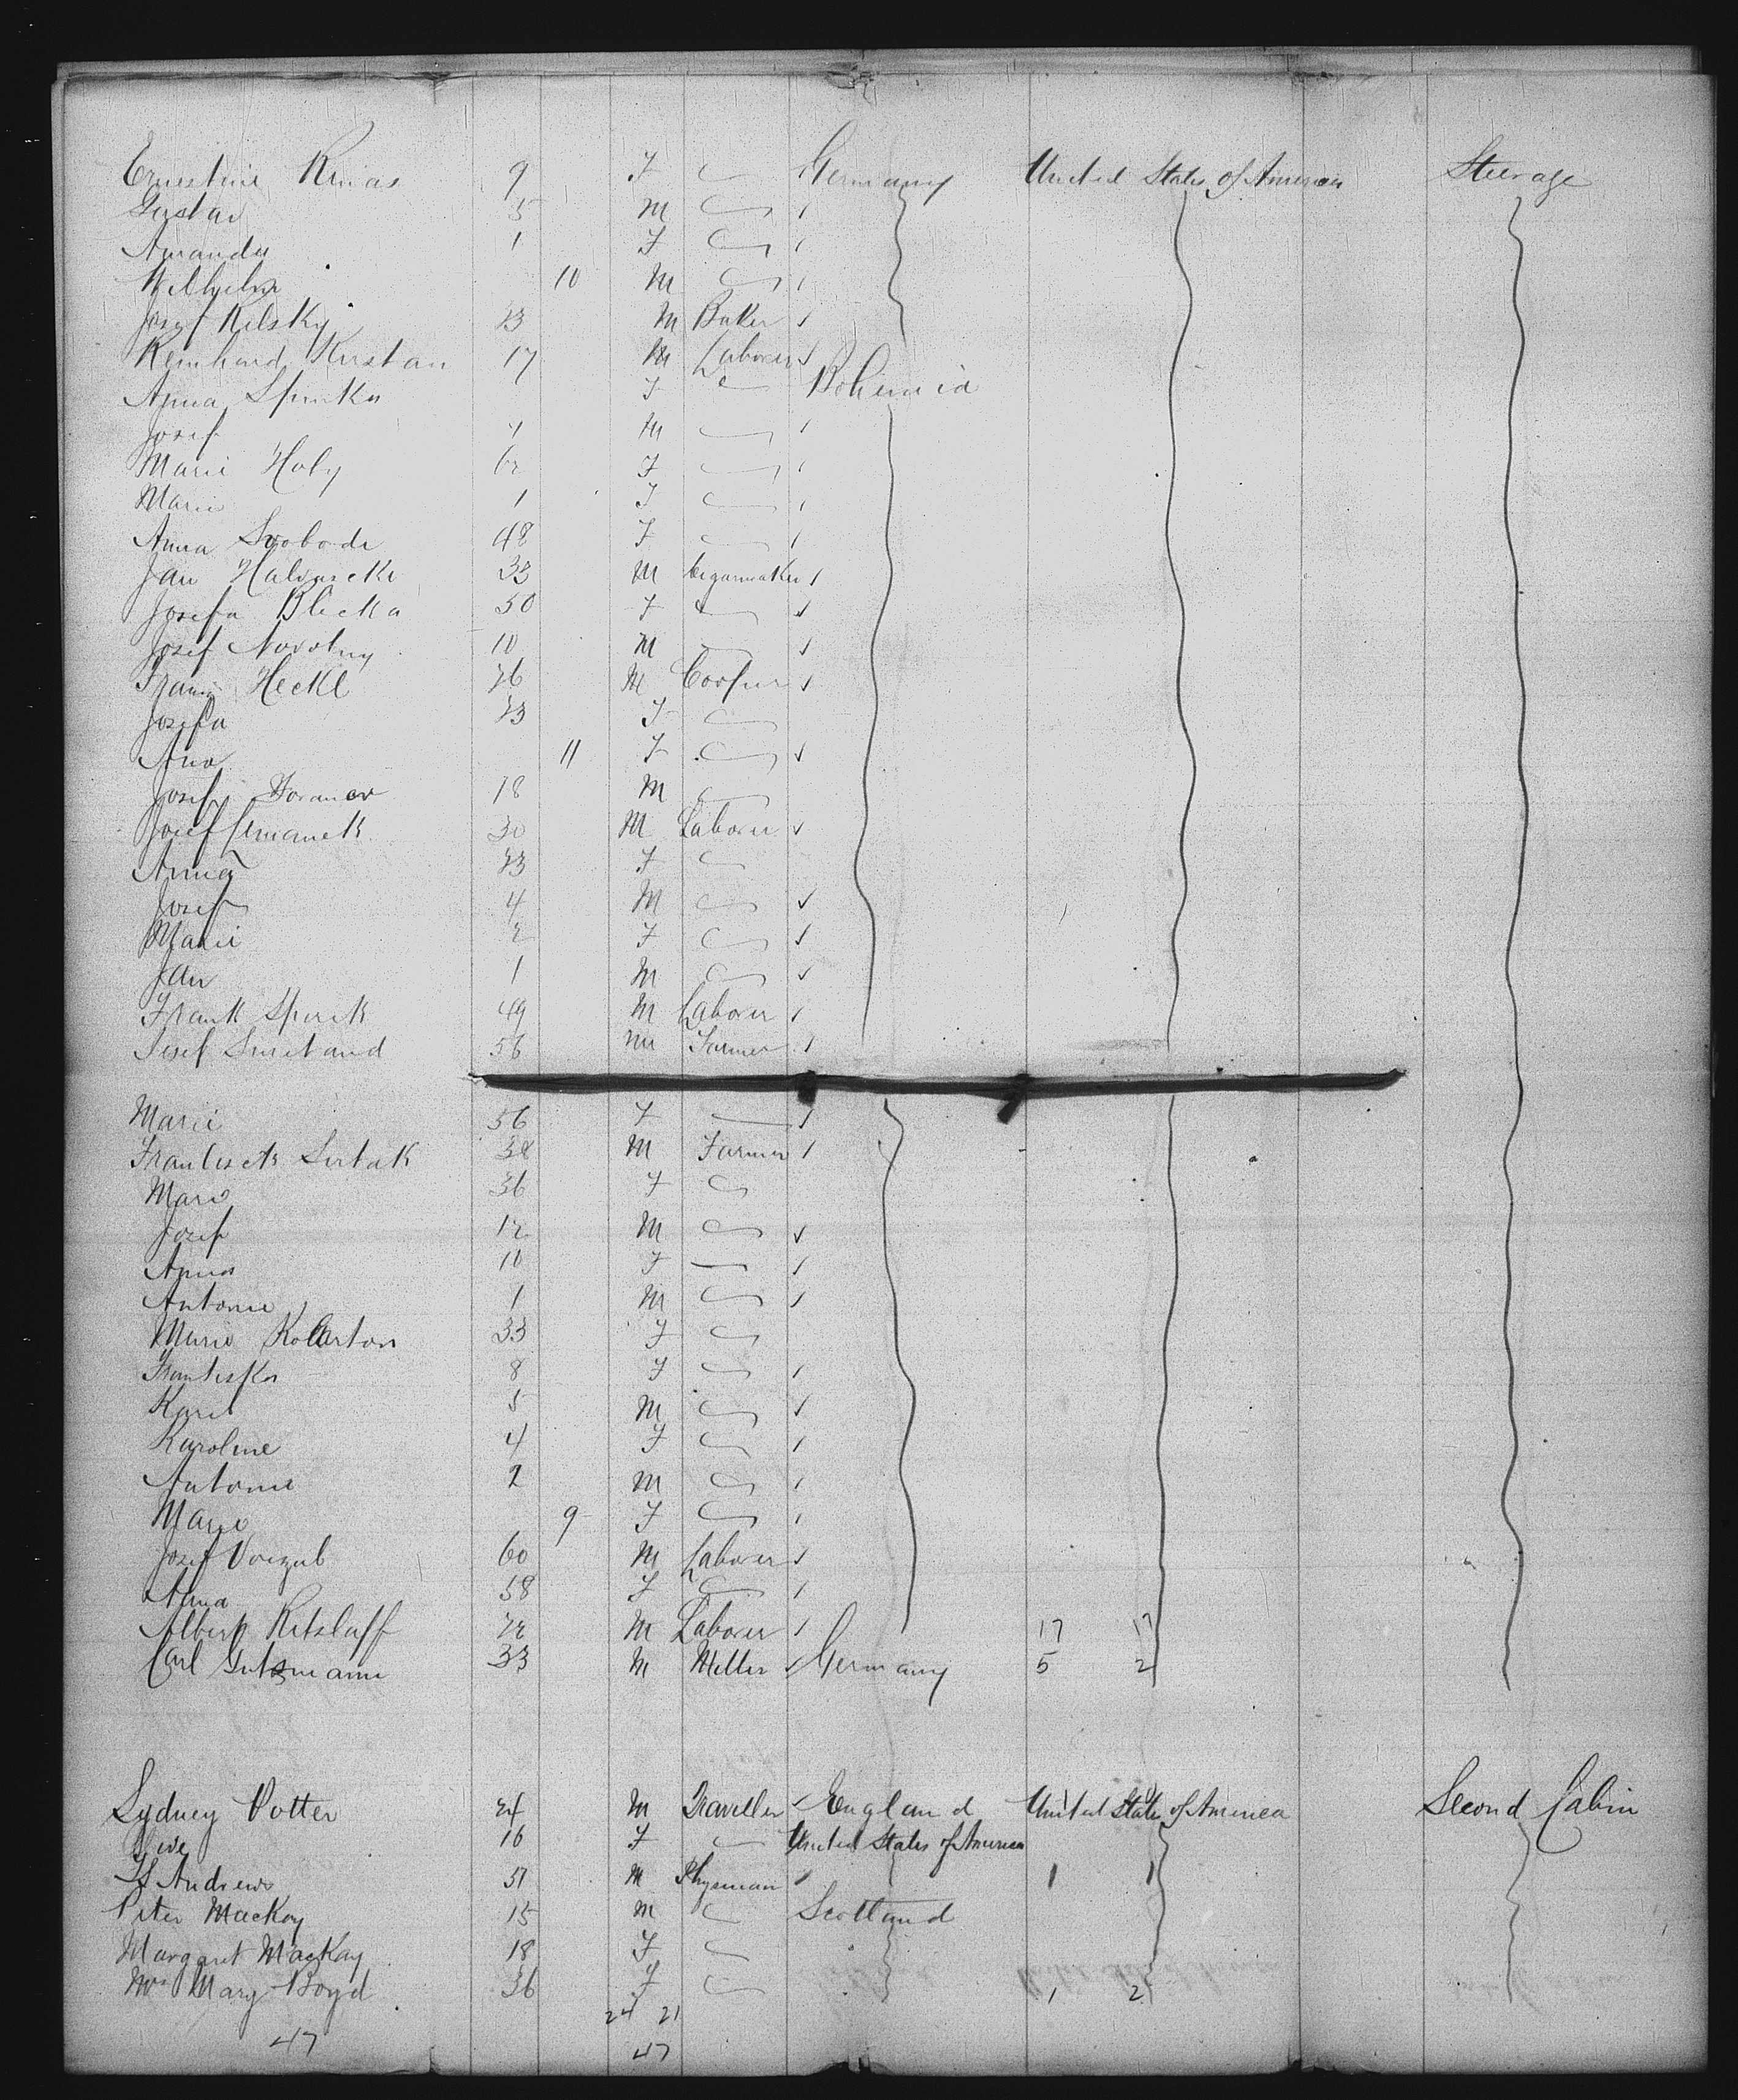 Ernestine Rinas 9 F Germany United States of America Steerage
Gustav 5 M
Amanda 1 F
Wilhelm 10 M
Josef Kilsky 23 M Baker
Reinhard Kirstan 17 M Laborer
Anna F Bohemia
Josef 4 M
Marie Holy 62 F
Marie 1 F
Anna Svoboda 48 F
Jan 33 M Cigarmaker
Josefa Blecka 50 F
Josef Novotny 10 M
Franz Heckl 26 M Cooper
Josefa 23 F
Ana 11 F
Josef 18 M
Josef 30 M Laborer
Anna 23 F
Josef 4 M
Marie 2 F
Jan 1 M
Frank 49 M Laborer
Josef Smetand 56 M Farmer
Marie 56 F
38 M Farmer
Marie 36 F
Josef 12 M
Anna 10 F
Antonie 1 M
Marie 33 F
Frantiska 8 F
Karel 5 M
Karoline 4 F
Antonie 2 M
Marie 9 F
Josef 60 M Laborer
Anna 58 F
Albert Retslaff 22 M Laborer 17 17
Carl Gutsmann 33 M Miller Germany 5 2
Sydney Potter 24 M Traveller England United States of America Second Cabin
16 F United States of America
Andrews 51 M Physician 1 1
Peter MacKay 15 M Scotland
Margaret MacKay 18 F
Mrs Mary Boyd 36 F 1 2
24 21
47 47